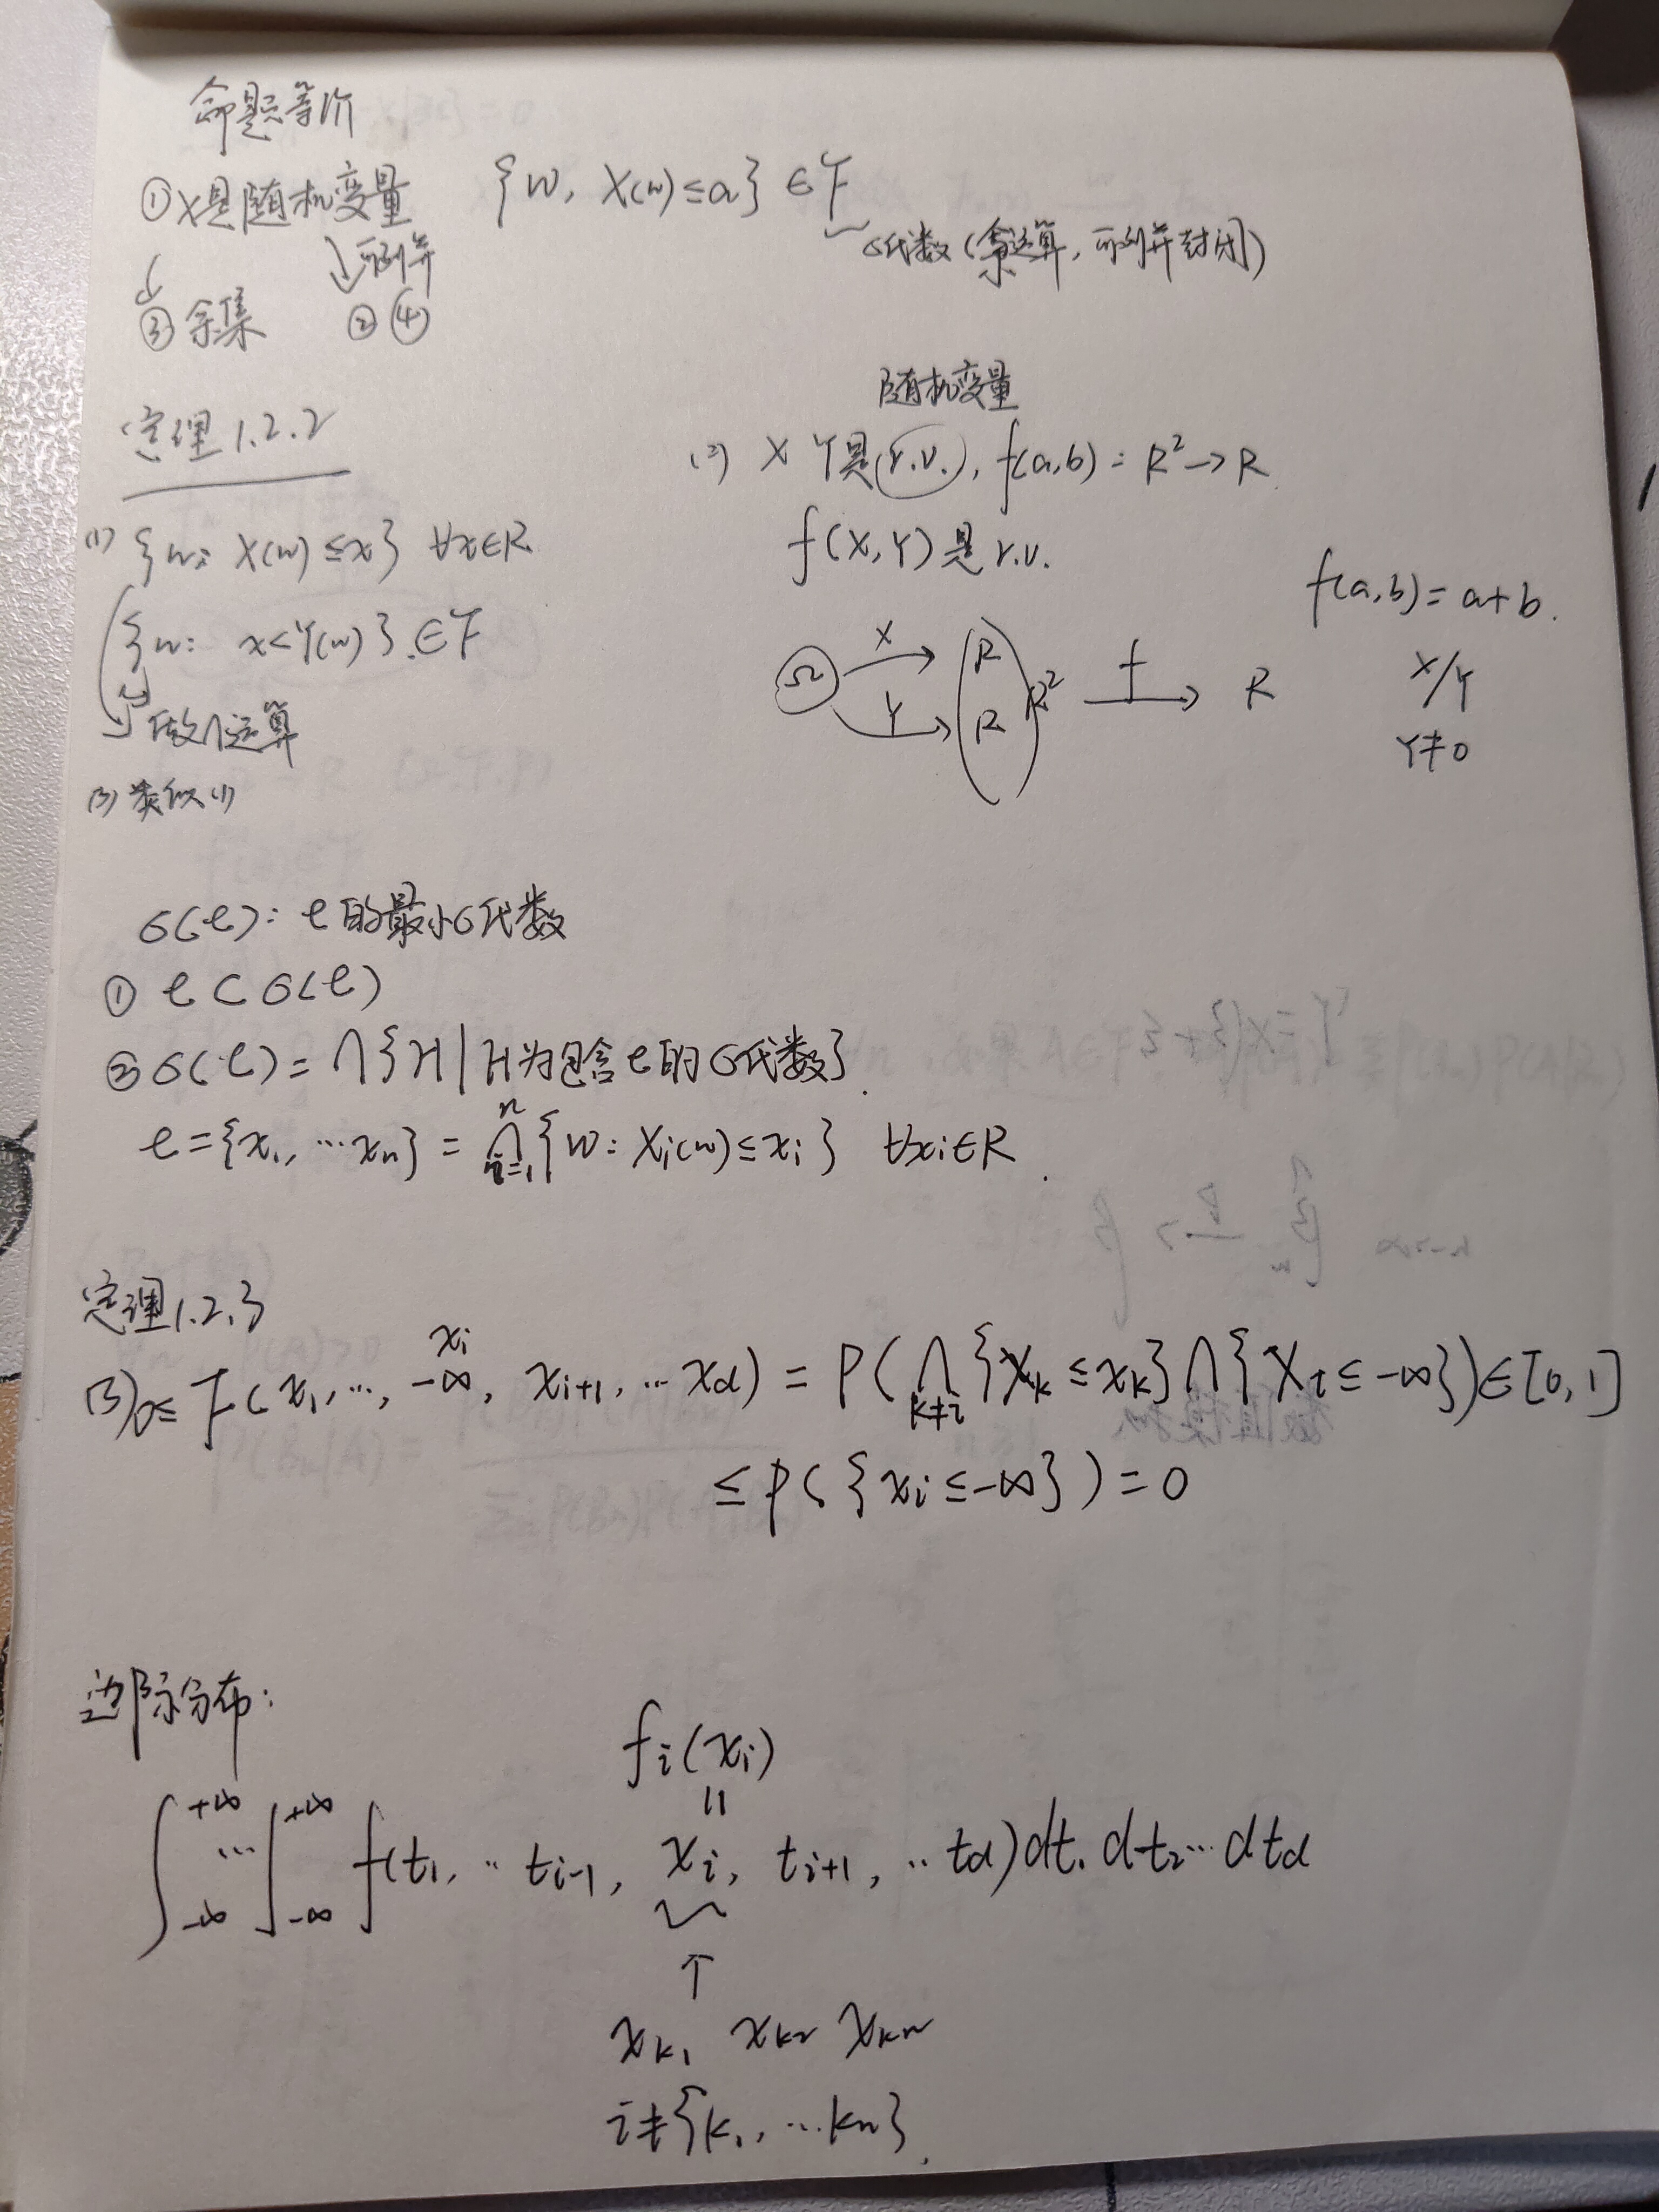 命题等价
①X是随机变量 {w, X(w)≤a} ∈ F
↓ ↓可列并 σ代数(余运算,可列并封闭)
③余集 ②④
定理1.2.2
(1) {w: X(w)≤x} ∀x∈R
{w: x<Y(w)}.∈F
做∩运算
(3) 类似(1)
随机变量
(2) X Y是(r.v.), f(a,b): R²→R
f(X,Y)是r.v.
f(a,b)=a+b.
Ω X→ Y→ (R R) R² f→ R
X/Y
Y≠0
σ(e): e的最小σ代数
① e⊂σ(e)
②σ(e)=∩{H|H为包含e的σ代数}.
e={x₁,…xₙ}=⋂ⁿᵢ₌₁{w: Xᵢ(w)≤xᵢ} ∀xᵢ∈R.
定理1.2.3
xᵢ
(3) 0≤F(x₁,…, -∞, xᵢ₊₁,…x_d)=P(⋂_{k≠i}{X_k≤x_k}∩{Xᵢ≤-∞})∈[0,1]
≤P({xᵢ≤-∞})=0
边际分布:
fᵢ(xᵢ)
||
∫_{-∞}^{+∞}…∫_{-∞}^{+∞} f(t₁,..tᵢ₋₁, xᵢ, tᵢ₊₁,..t_d)dt₁dt₂…dt_d
↑
x_{k₁} x_{k₂} x_{kₙ}
i≠{k₁,…kₙ}.